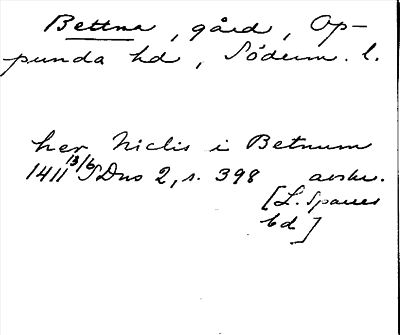 Bettna, gård, Op-
punda hd, Söderm. l.
her Niclis i Betnum
1411 13/6 SDns 2, s. 398 avskr.
[L. Sparres
bd]